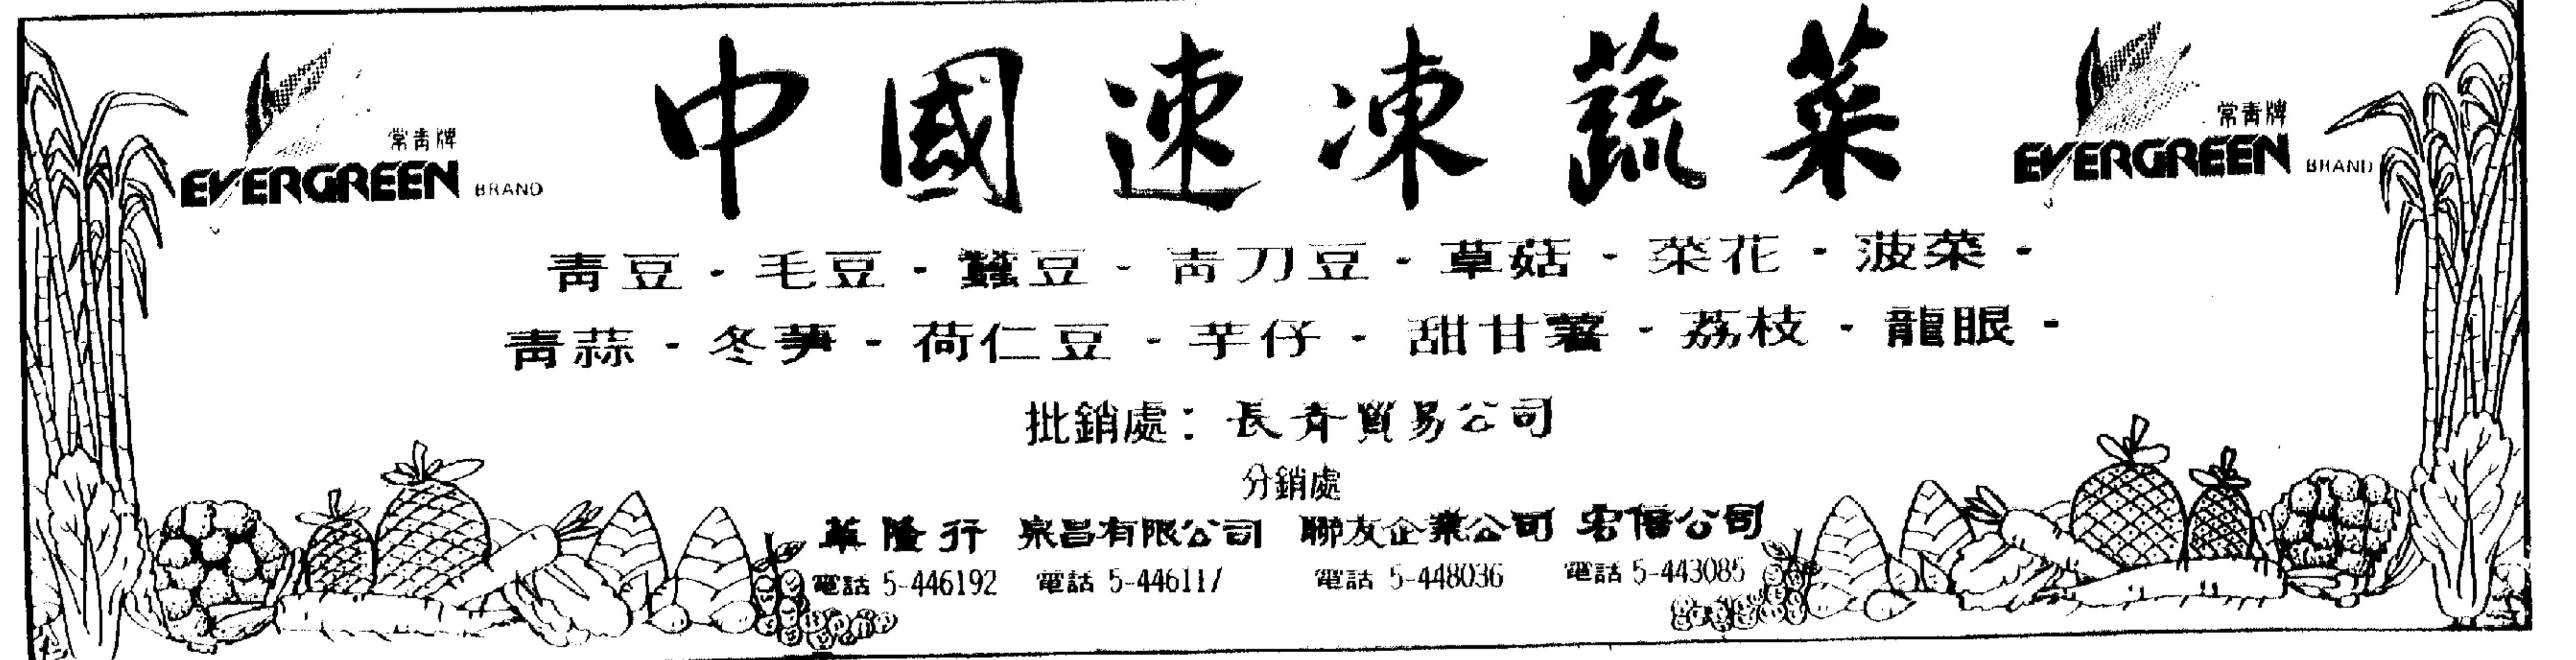 中國速凍蔬菜
常青牌
EVERGREEN BRAND
常青牌
EVERGREEN BRAND
青豆·毛豆·蠶豆·青刀豆·草菇·菜花·菠菜·
青蒜·冬筍·荷仁豆·芋仔·甜甘薯·荔枝·龍眼·
批銷處：長青貿易公司
分銷處
華隆行 泉昌有限公司 聯友企業公司 公司
電話 5-446192 電話 5-446117 電話 5-448036 電話 5-443085